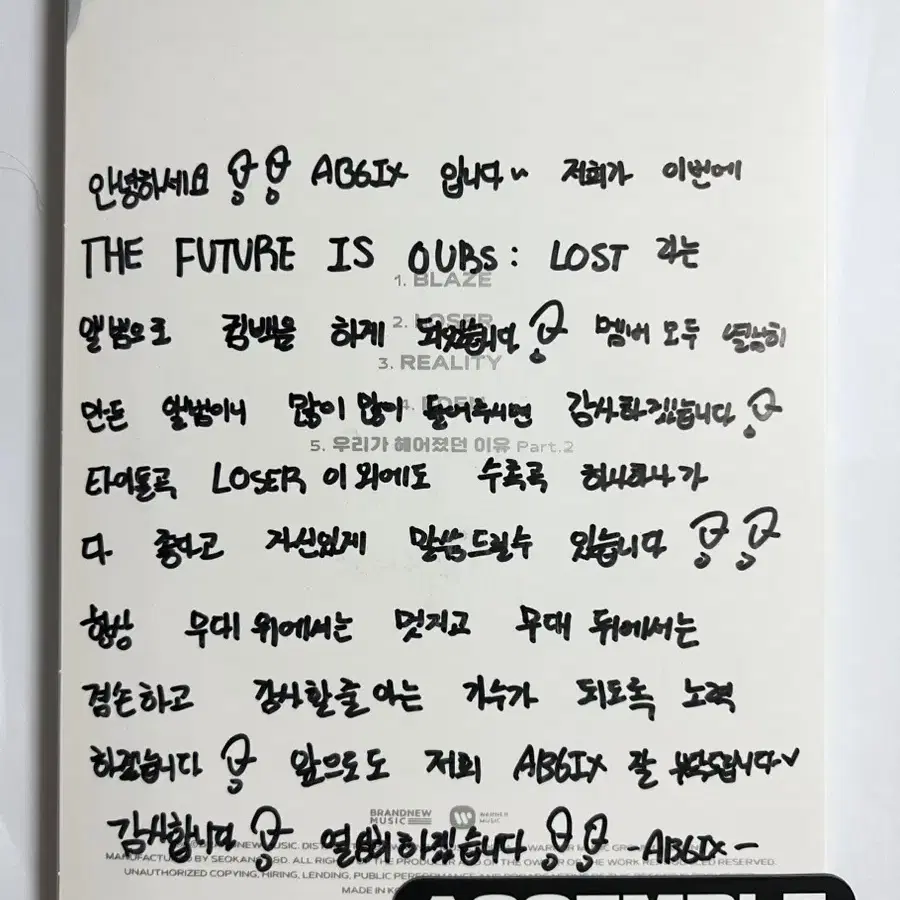 안녕하세요!! AB6IX 입니다~ 저희가 이번에
THE FUTURE IS OURS : LOST 라는
1. BLAZE
앨범으로 컴백을 하게 되었습니다! 멤버 모두 열심히
2. LOSER
3. REALITY
만든 앨범이니 많이 많이 들어주시면 감사하겠습니다!
4. EDEN
5. 우리가 헤어졌던 이유 Part.2
타이틀곡 LOSER 이 외에도 수록곡 하나하나가
다 좋다고 자신있게 말씀드릴수 있습니다!!
항상 무대 위에서는 멋지고 무대 뒤에서는
겸손하고 감사할줄 아는 가수가 되도록 노력
하겠습니다! 앞으로도 저희 AB6IX 잘 부탁드립니다~
BRANDNEW MUSIC WARNER MUSIC
감사합니다! 열심히하겠습니다!! -AB6IX-
MANUFACTURED BY ALL RIGHTS OF THE PRODUCER AND OF THE OWNER OF THE WORK REPRODUCED RESERVED.
UNAUTHORIZED COPYING, HIRING, LENDING, PUBLIC PERFORMANCE
MADE IN
ASSEMBLE